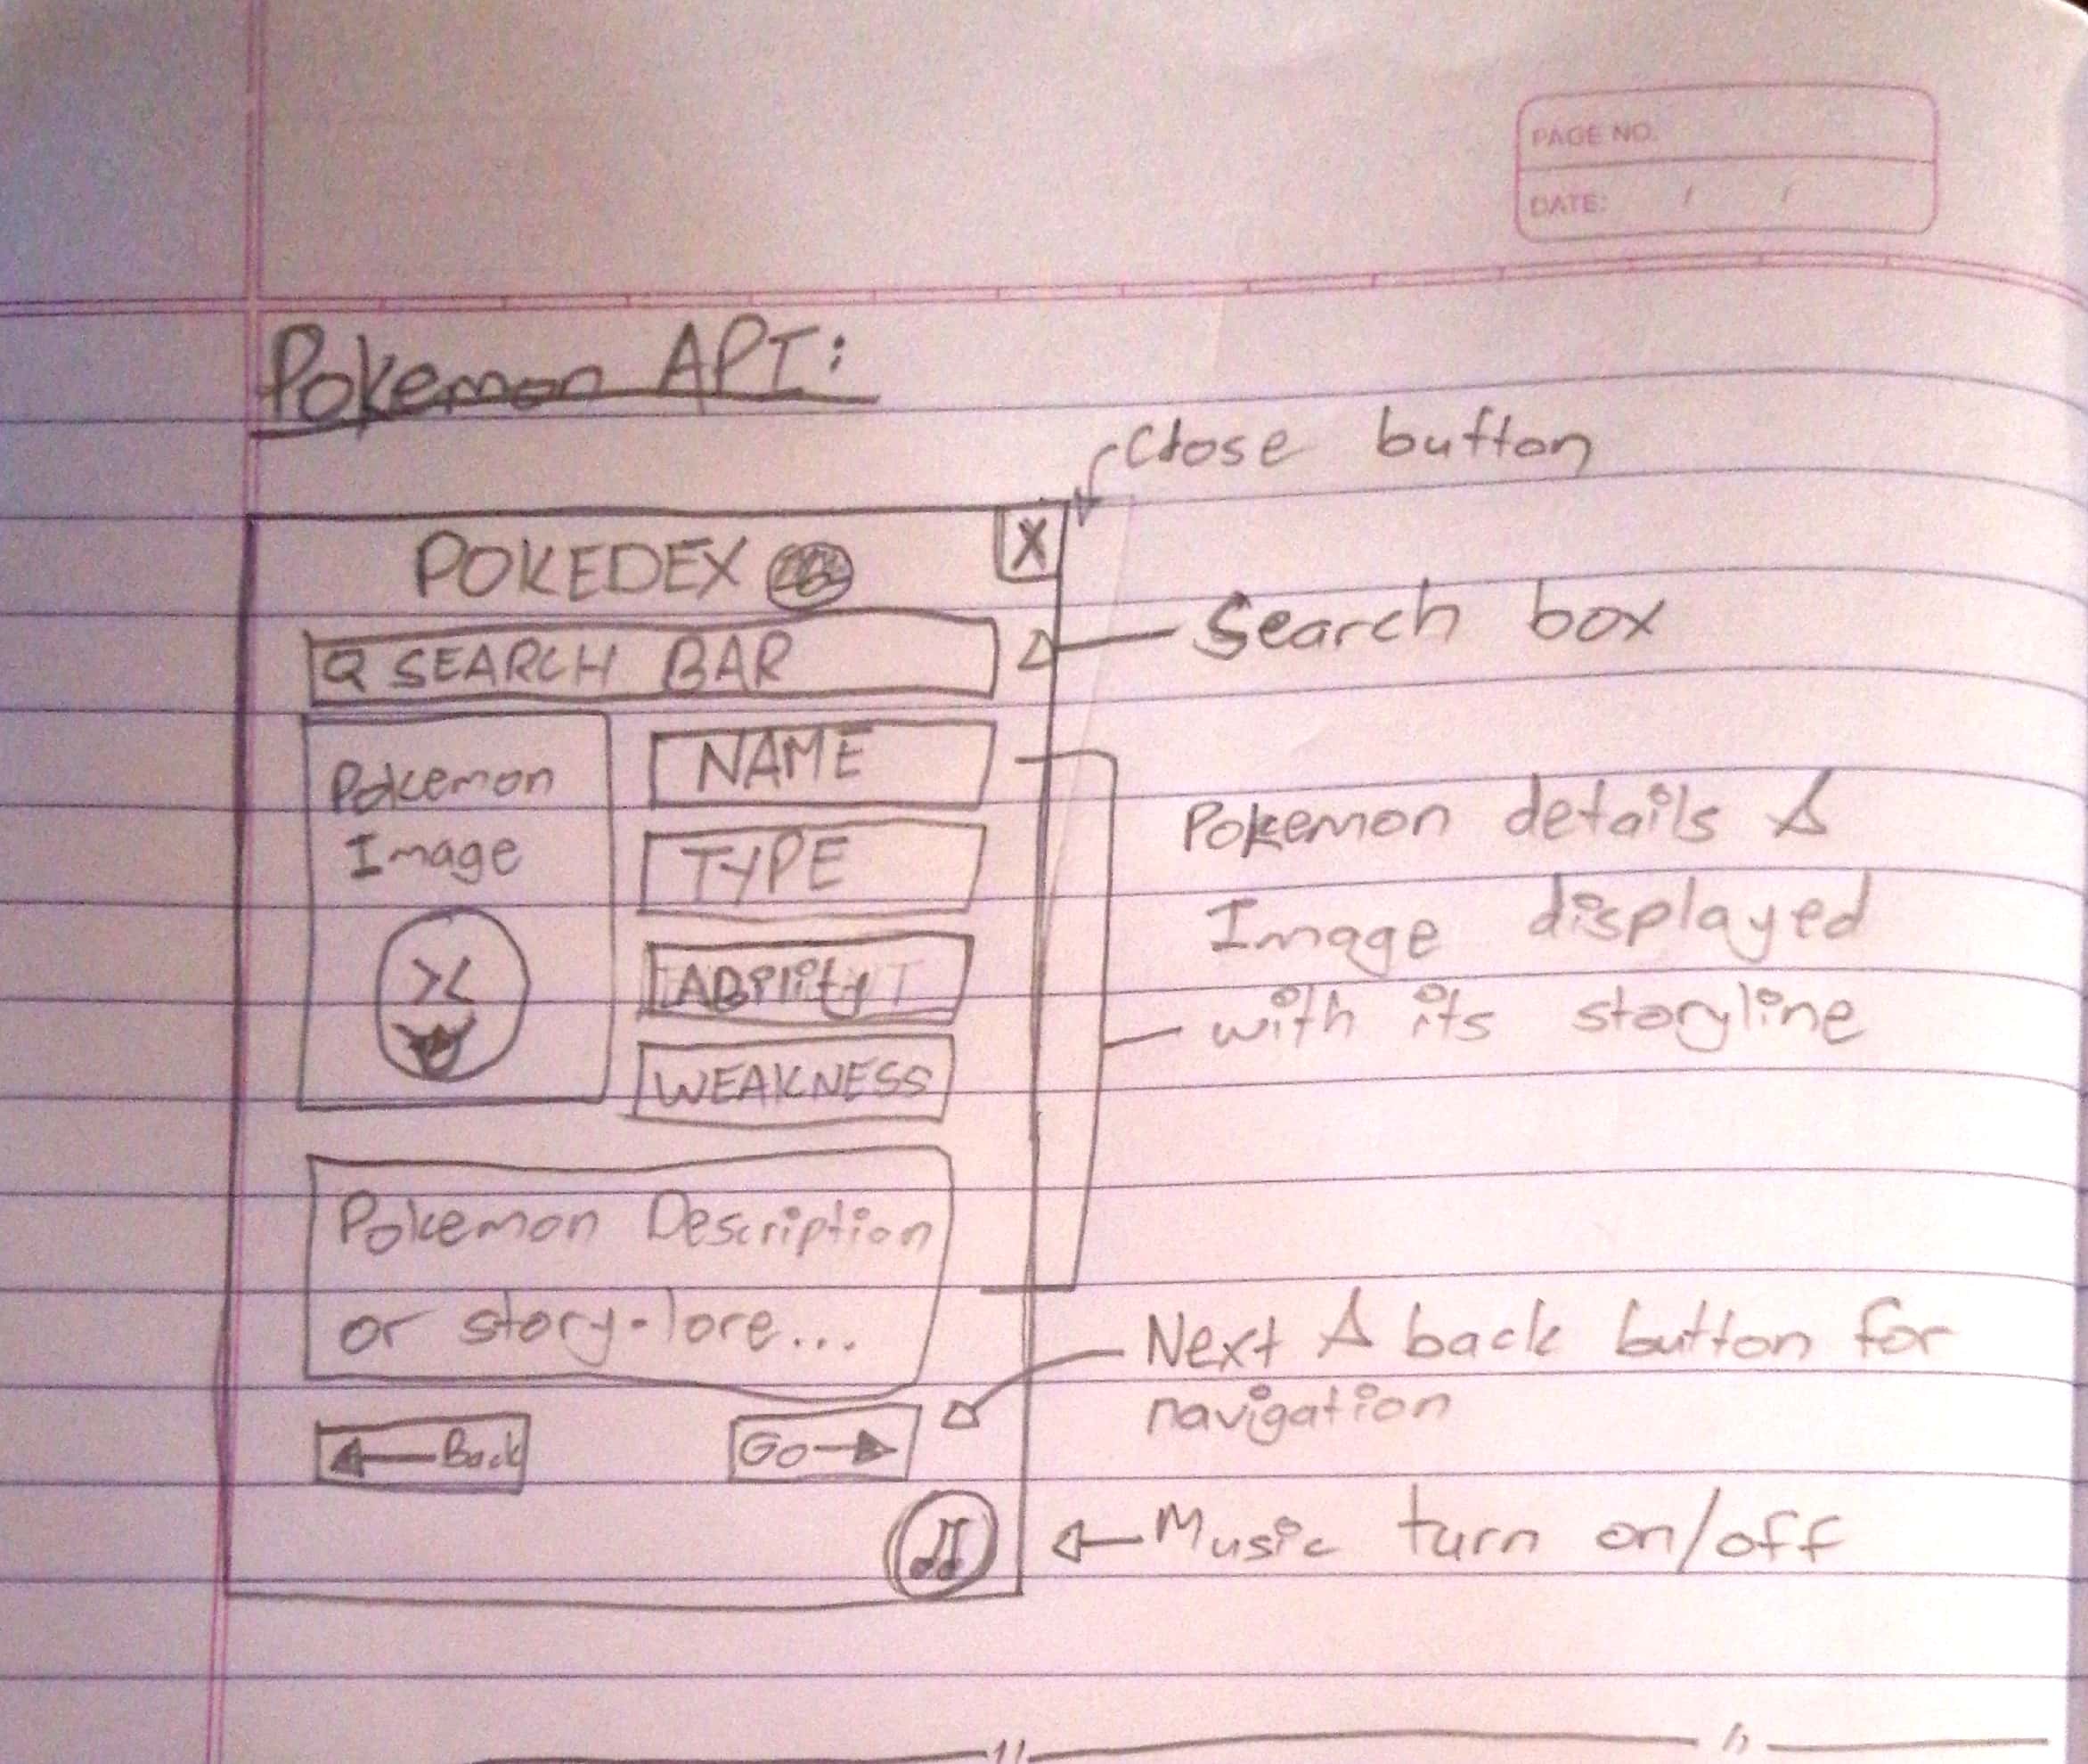 PAGE NO.
DATE: / /
Pokemon API:
Close button
POKEDEX
X
SEARCH BAR
Search box
Pokemon
Image
NAME
TYPE
Ability
WEAKNESS
Pokemon details &
Image displayed
with its storyline
Pokemon Description
or story-lore...
← Back
Go →
Next & back button for
navigation
Music turn on/off